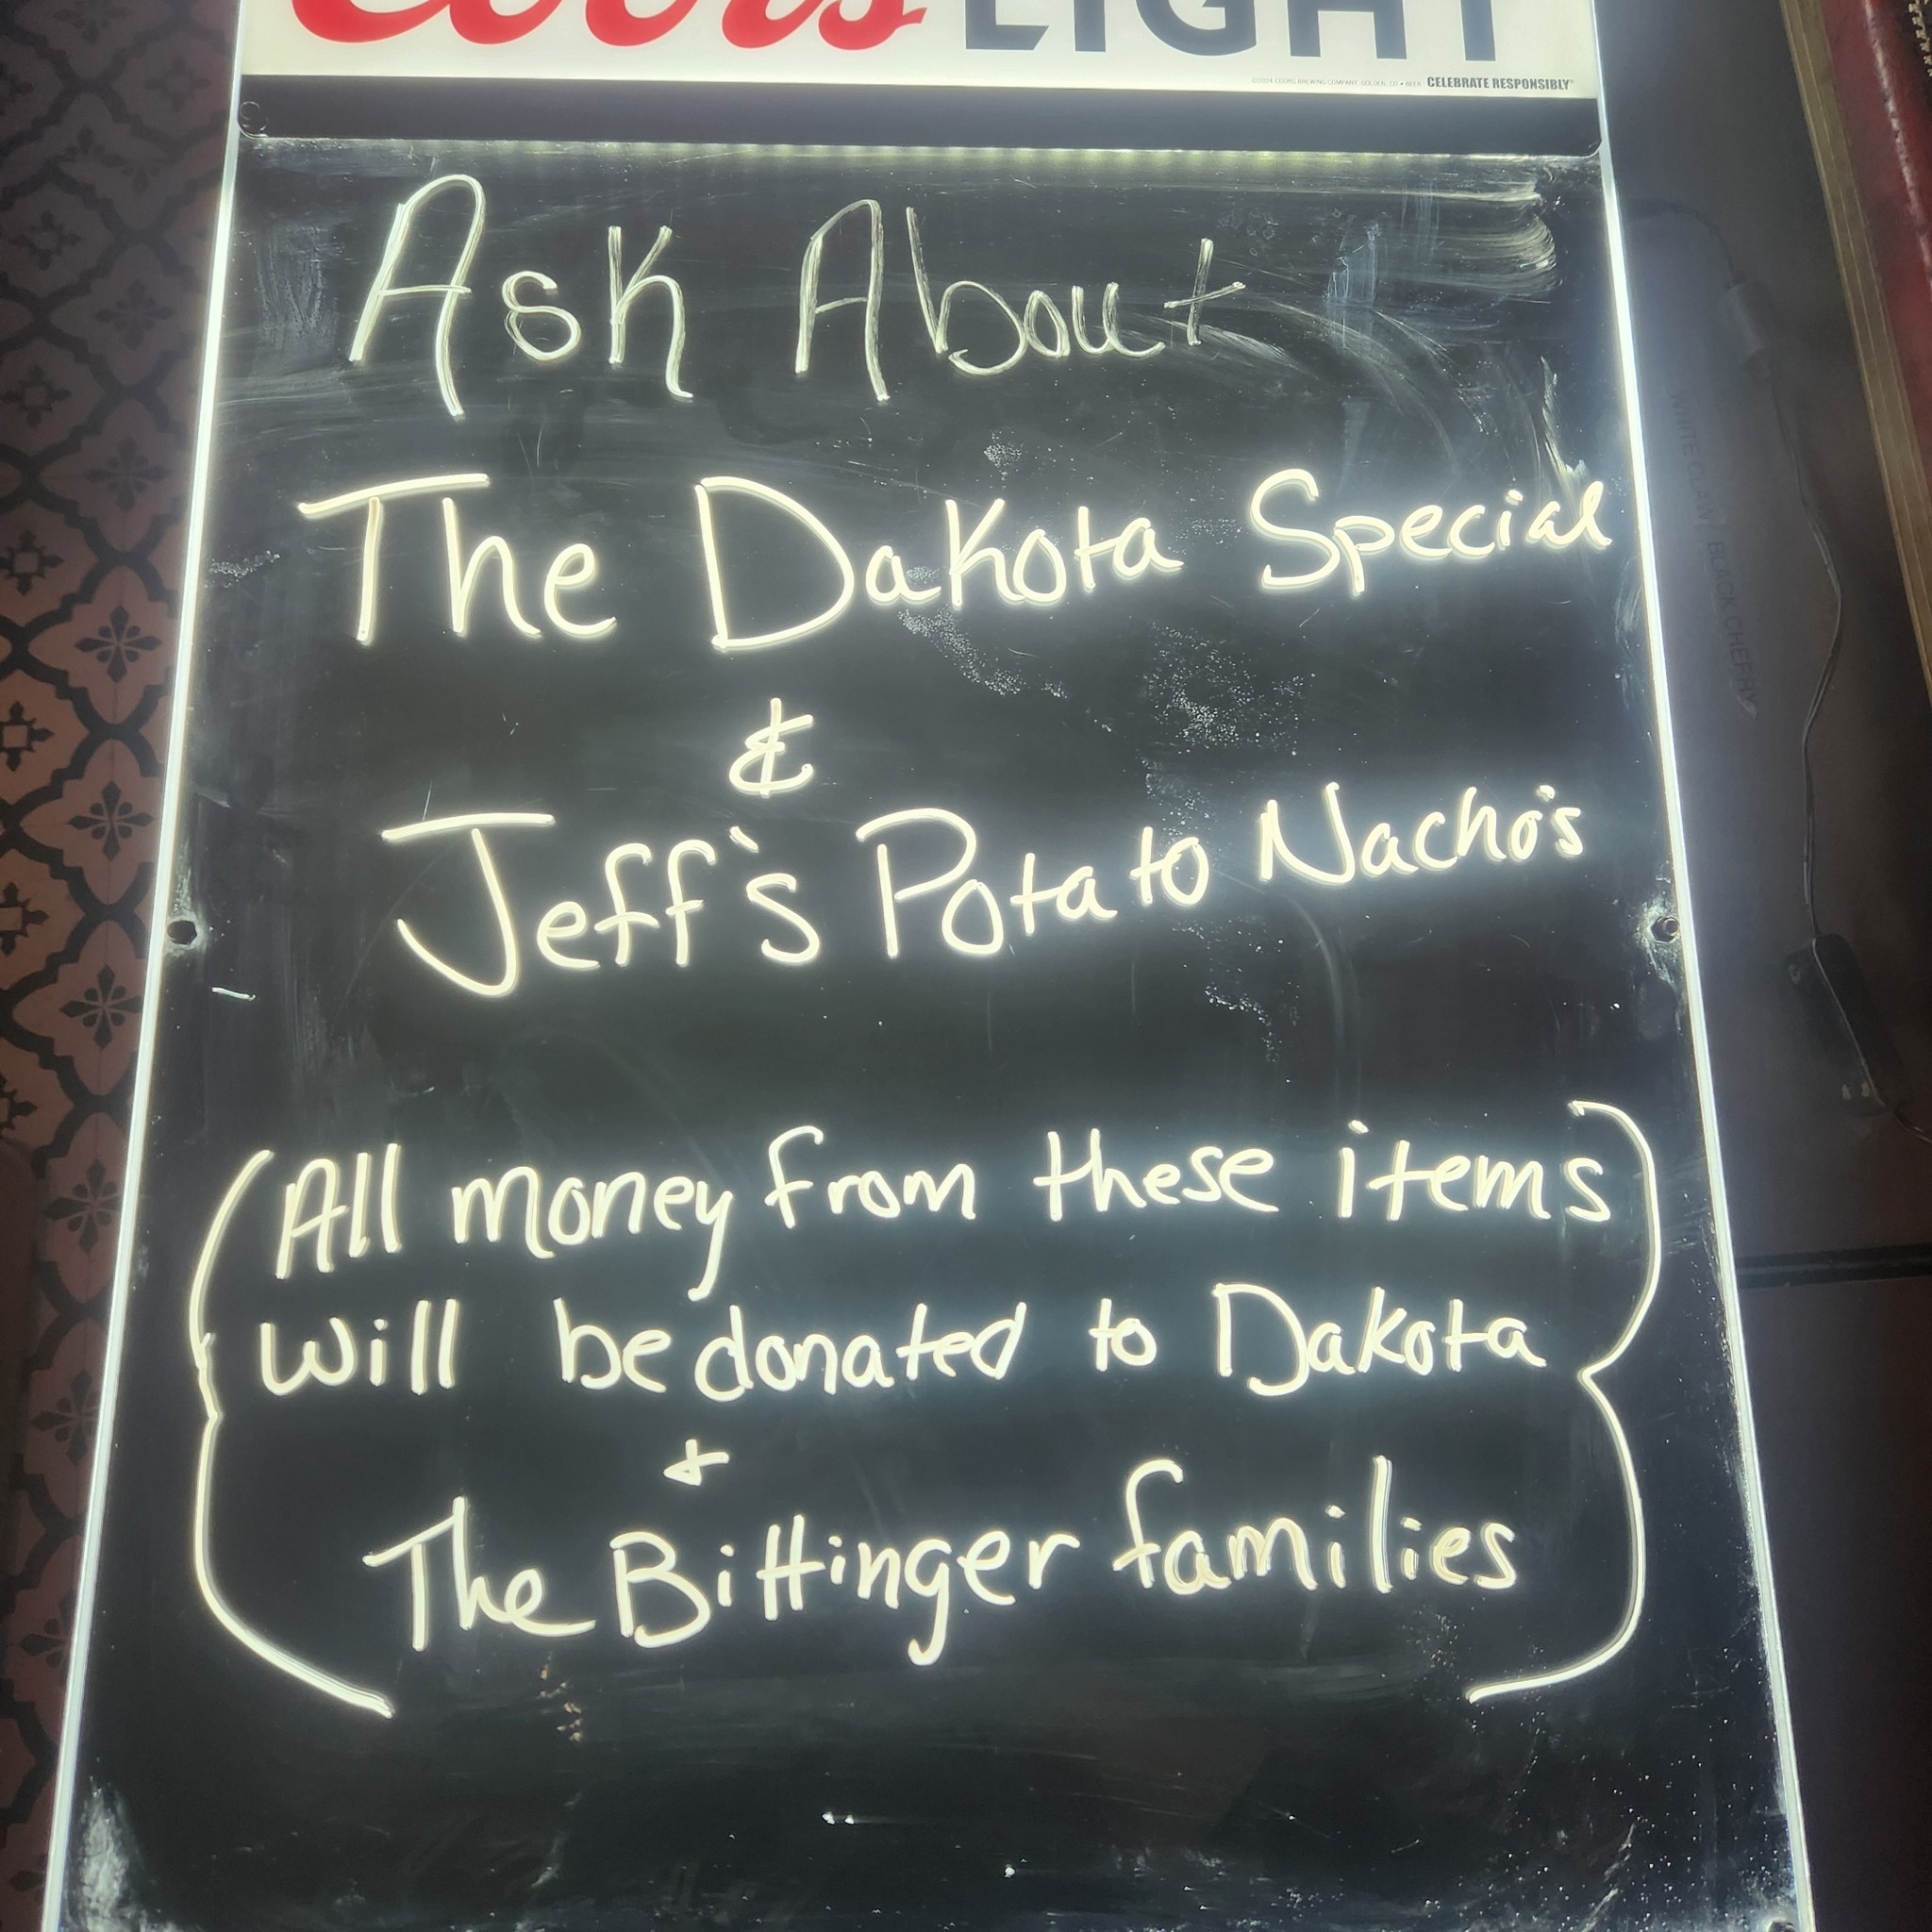 Coors LIGHT
©2024 COORS BREWING COMPANY, GOLDEN, CO • BEER CELEBRATE RESPONSIBLY®
Ask About
The Dakota Special
&
Jeff's Potato Nacho's
(All money from these items
Will be donated to Dakota
+
The Bittinger families)
WHITE CLAW BLACK CHERRY